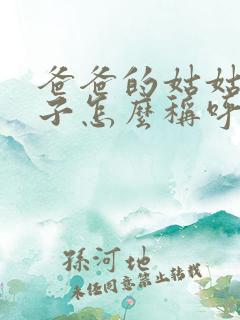 爸爸的姑姑
子怎麼稱呼
孫河地
未經同意禁止轉載